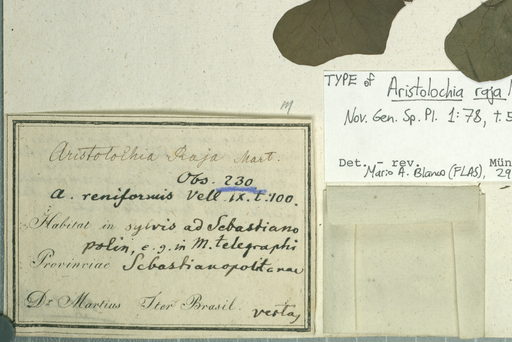 TYPE of Aristolochia raja
Nov. Gen. Sp. Pl. 1:78, t. 5
Det. - rev. Mün
Mario A. Blanco (FLAS), 29
m
Aristolochia Raja Mart.
Obs. 230
A. reniformis Vell. IX. t. 100.
Habitat in sylvis ad Sebastiano
polin, e. g. in M. telegraphi
Provinciae Sebastianopolitanae
Dr. Martius Iter Brasil.